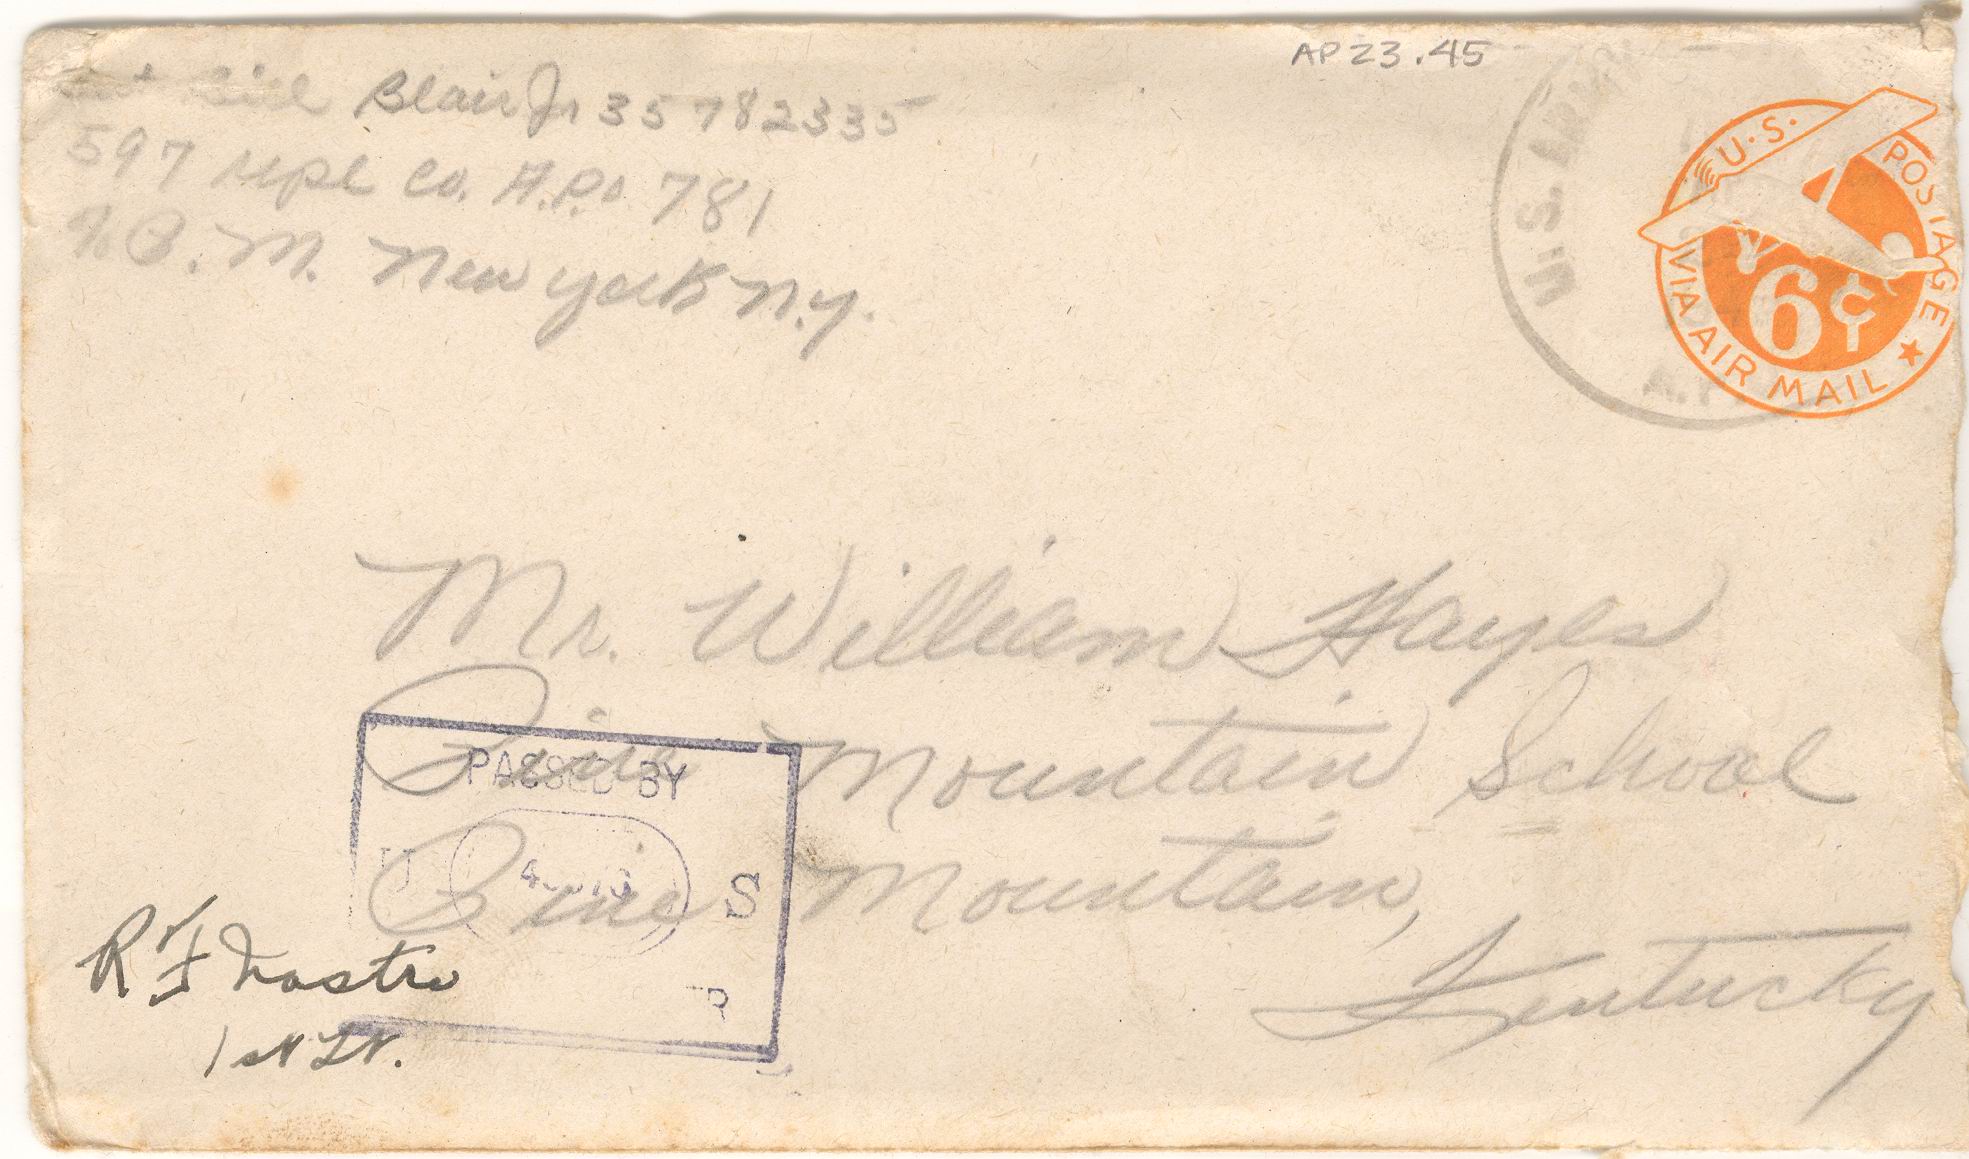 AP 23.45
Blair Jr 35782335
597 Mpl Co. A.P.O 781
P.M. New York N.Y.
U.S. ARMY
U.S. POSTAGE
6¢
VIA AIR MAIL
Mr. William Hayes
Pine Mountain School
Pine Mountain,
Kentucky
PASSED BY
U S
R
R F
1st Lt.